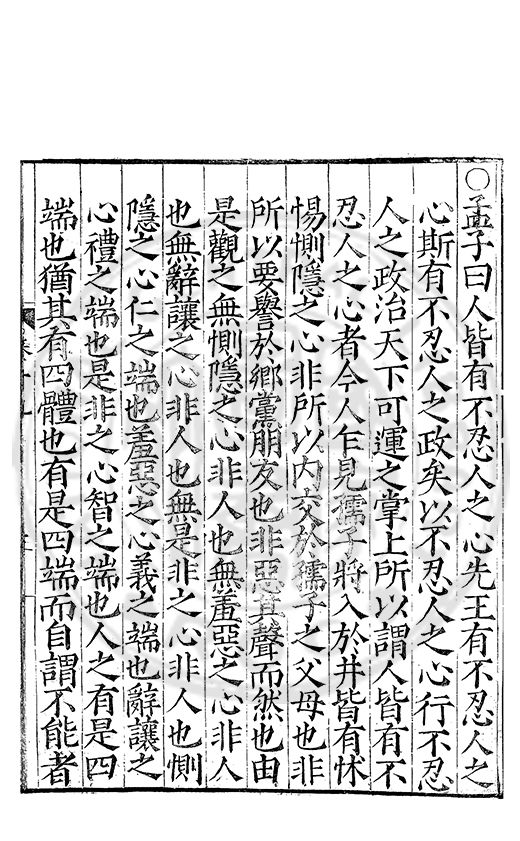 ○孟子曰人皆有不忍人之心先王有不忍人之
心斯有不忍人之政矣以不忍人之心行不忍
人之政治天下可運之掌上所以謂人皆有不
忍人之心者今人乍見孺子將入於井皆有怵
惕惻隱之心非所以内交於孺子之父母也非
所以要譽於鄉黨朋友也非惡其聲而然也由
是觀之無惻隱之心非人也無羞惡之心非人
也無辭讓之心非人也無是非之心非人也惻
隱之心仁之端也羞惡之心義之端也辭讓之
心禮之端也是非之心智之端也人之有是四
端也猶其有四體也有是四端而自謂不能者